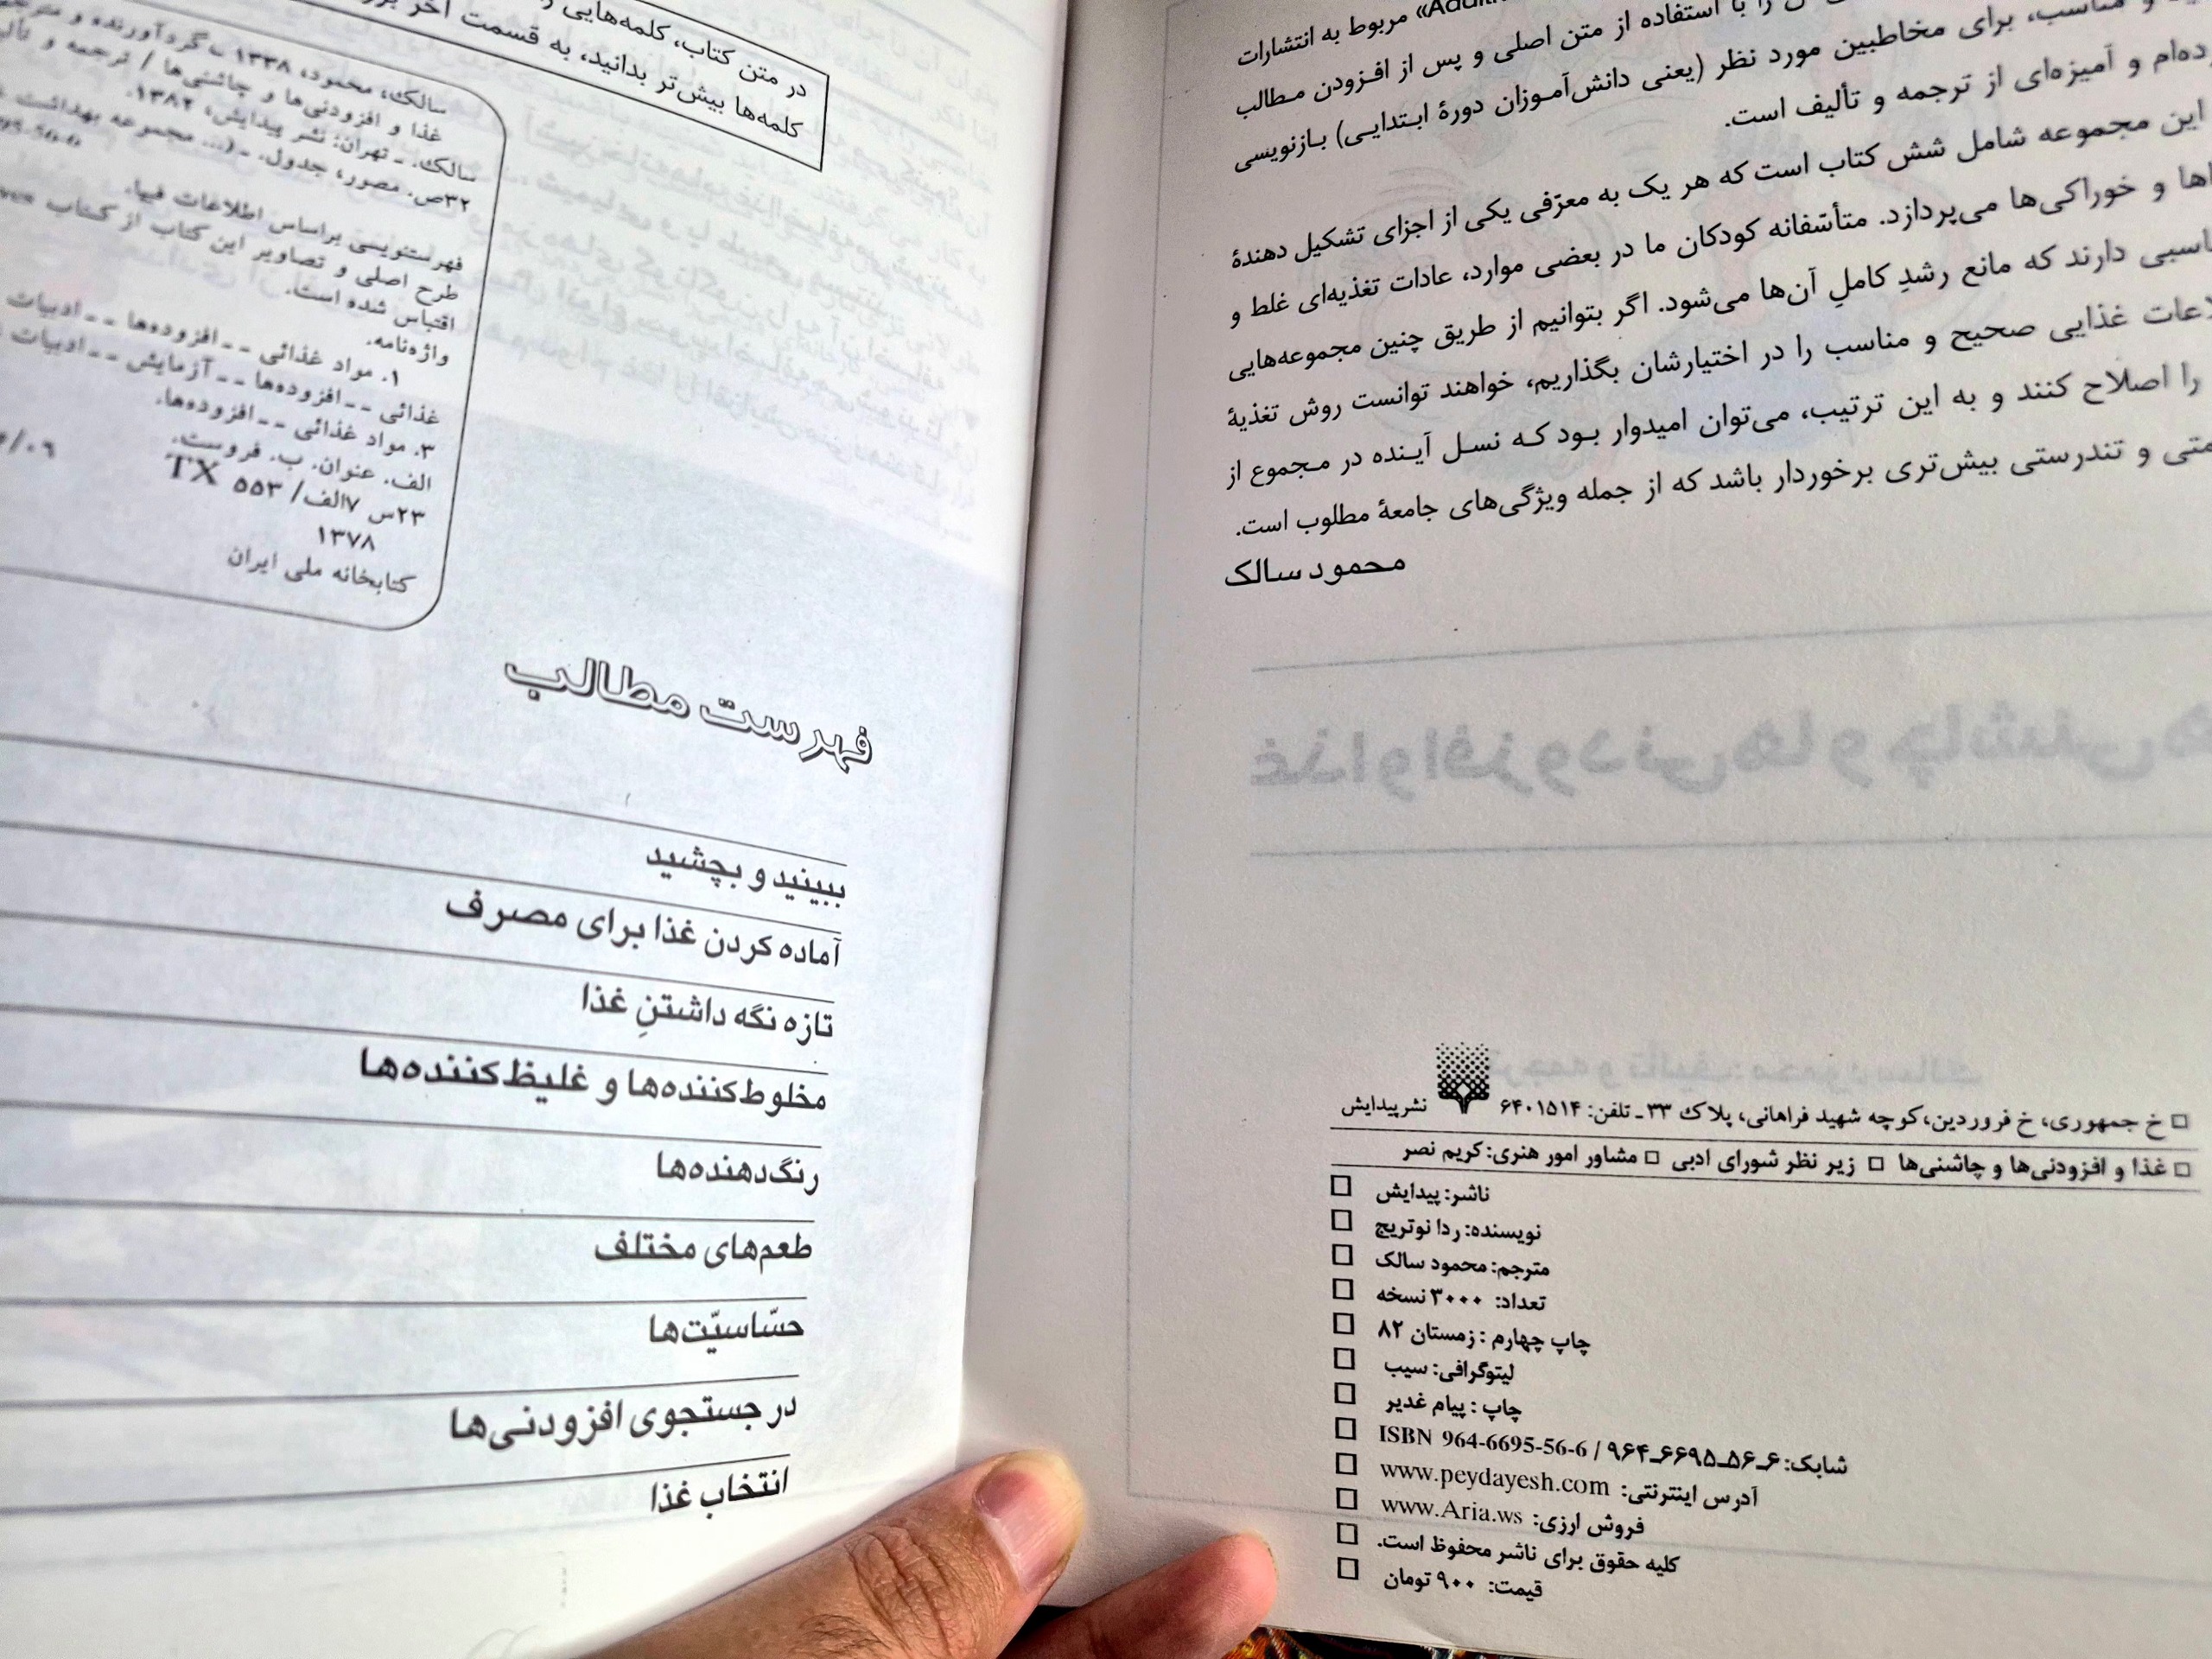 مربوط به انتشارات
را با استفاده از متن اصلی و پس از افزودن مطالب
مناسب، برای مخاطبین مورد نظر (یعنی دانش‌آموزان دورهٔ ابتدایی) بازنویسی
و آمیزه‌ای از ترجمه و تألیف است.
این مجموعه شامل شش کتاب است که هر یک به معرّفی یکی از اجزای تشکیل دهندهٔ
و خوراکی‌ها می‌پردازد. متأسّفانه کودکان ما در بعضی موارد، عادات تغذیه‌ای غلط و
دارند که مانع رشدِ کاملِ آن‌ها می‌شود. اگر بتوانیم از طریق چنین مجموعه‌هایی
غذایی صحیح و مناسب را در اختیارشان بگذاریم، خواهند توانست روش تغذیهٔ
را اصلاح کنند و به این ترتیب، می‌توان امیدوار بود که نسل آینده در مجموع از
و تندرستی بیش‌تری برخوردار باشد که از جمله ویژگی‌های جامعهٔ مطلوب است.
محمود سالک
□ خ جمهوری، خ فروردین، کوچه شهید فراهانی، پلاک ۳۳ ـ تلفن: ۶۴۰۱۵۱۴ نشر پیدایش
□ غذا و افزودنی‌ها و چاشنی‌ها □ زیر نظر شورای ادبی □ مشاور امور هنری: کریم نصر
□ ناشر: پیدایش
□ نویسنده: ردا نوتریج
□ مترجم: محمود سالک
□ تعداد: ۳۰۰۰ نسخه
□ چاپ چهارم : زمستان ۸۲
□ لیتوگرافی: سیب
□ چاپ : پیام غدیر
□ شابک: ۶ـ۵۶ـ۶۶۹۵ـ۹۶۴ / ISBN 964-6695-56-6
□ آدرس اینترنتی: www.peydayesh.com
□ فروش ارزی: www.Aria.ws
□ کلیه حقوق برای ناشر محفوظ است.
□ قیمت: ۹۰۰ تومان
در متن کتاب، کلمه‌هایی
کلمه‌ها بیش‌تر بدانید، به قسمت آخر
سالک، محمود، ۱۳۳۸ ـ گردآورنده و مترجم
غذا و افزودنی‌ها و چاشنی‌ها / ترجمه و تألیف
سالک. ـ تهران: نشر پیدایش، ۱۳۸۲.
۳۲ص. مصور، جدول. ـ (... مجموعه بهداشت
فهرستنویسی براساس اطلاعات فیپا.
طرح اصلی و تصاویر این کتاب از کتاب
اقتباس شده است.
واژه‌نامه.
۱. مواد غذائی ـ ـ افزوده‌ها ـ ـ ادبیات
غذائی ـ ـ افزوده‌ها ـ ـ آزمایش ـ ـ ادبیات
۳. مواد غذائی ـ ـ افزوده‌ها.
الف. عنوان. ب. فروست.
۲۳س ۷الف/ ۵۵۳ TX
۱۳۷۸
کتابخانه ملی ایران
فهرست مطالب
ببینید و بچشید
آماده کردن غذا برای مصرف
تازه نگه داشتنِ غذا
مخلوط‌کننده‌ها و غلیظ‌کننده‌ها
رنگ‌دهنده‌ها
طعم‌های مختلف
حسّاسیّت‌ها
در جستجوی افزودنی‌ها
انتخاب غذا